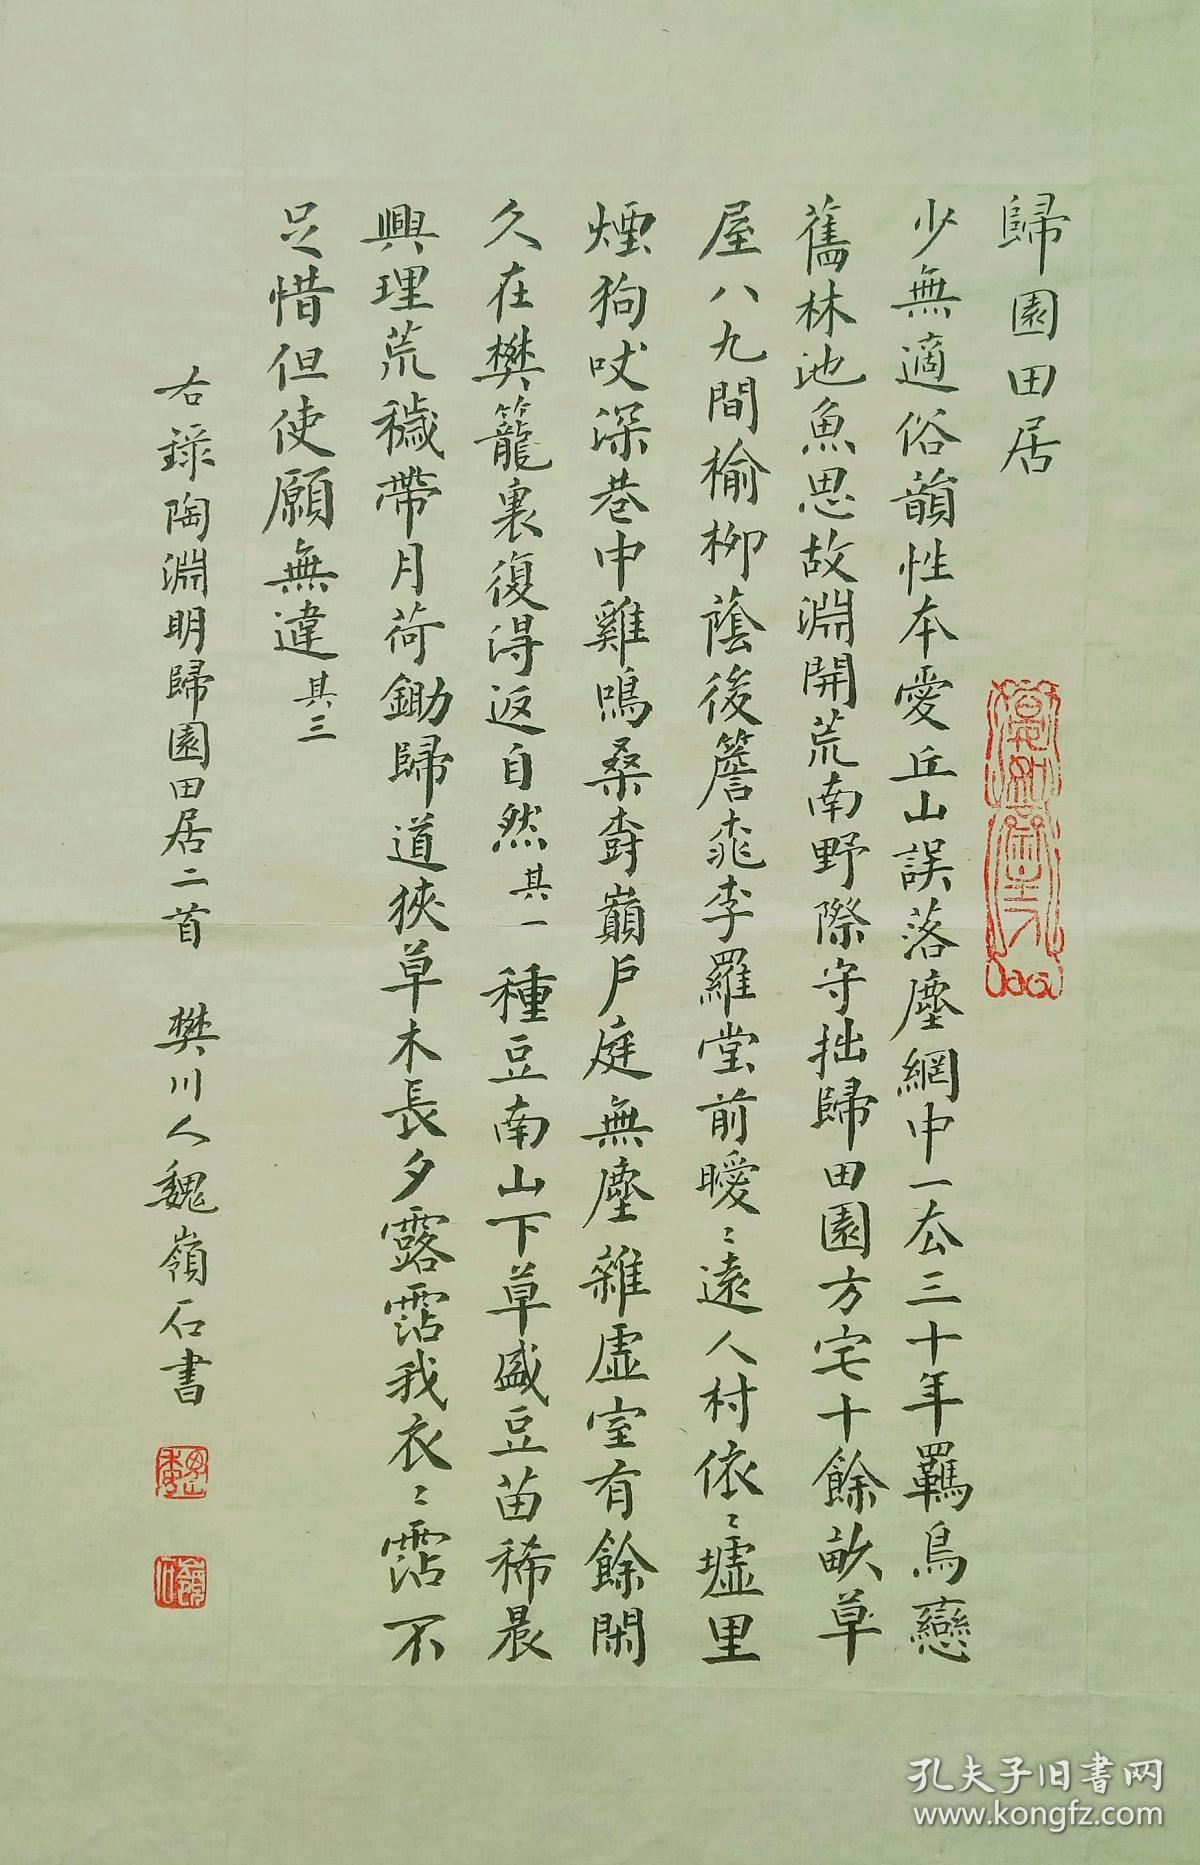 歸園田居
少無適俗韻性本愛丘山誤落塵網中一去三十年羈鳥戀
舊林池魚思故淵開荒南野際守拙歸田園方宅十餘畝草
屋八九間榆柳蔭後簷桃李羅堂前曖〻遠人村依〻墟里
煙狗吠深巷中雞鳴桑樹巔戶庭無塵雜虛室有餘閑
久在樊籠裏復得返自然其一 種豆南山下草盛豆苗稀晨
興理荒穢帶月荷鋤歸道狹草木長夕露霑我衣〻霑不
足惜但使願無違其三
右錄陶淵明歸園田居二首 樊川人魏嶺石書
孔夫子旧书网
www.kongfz.com